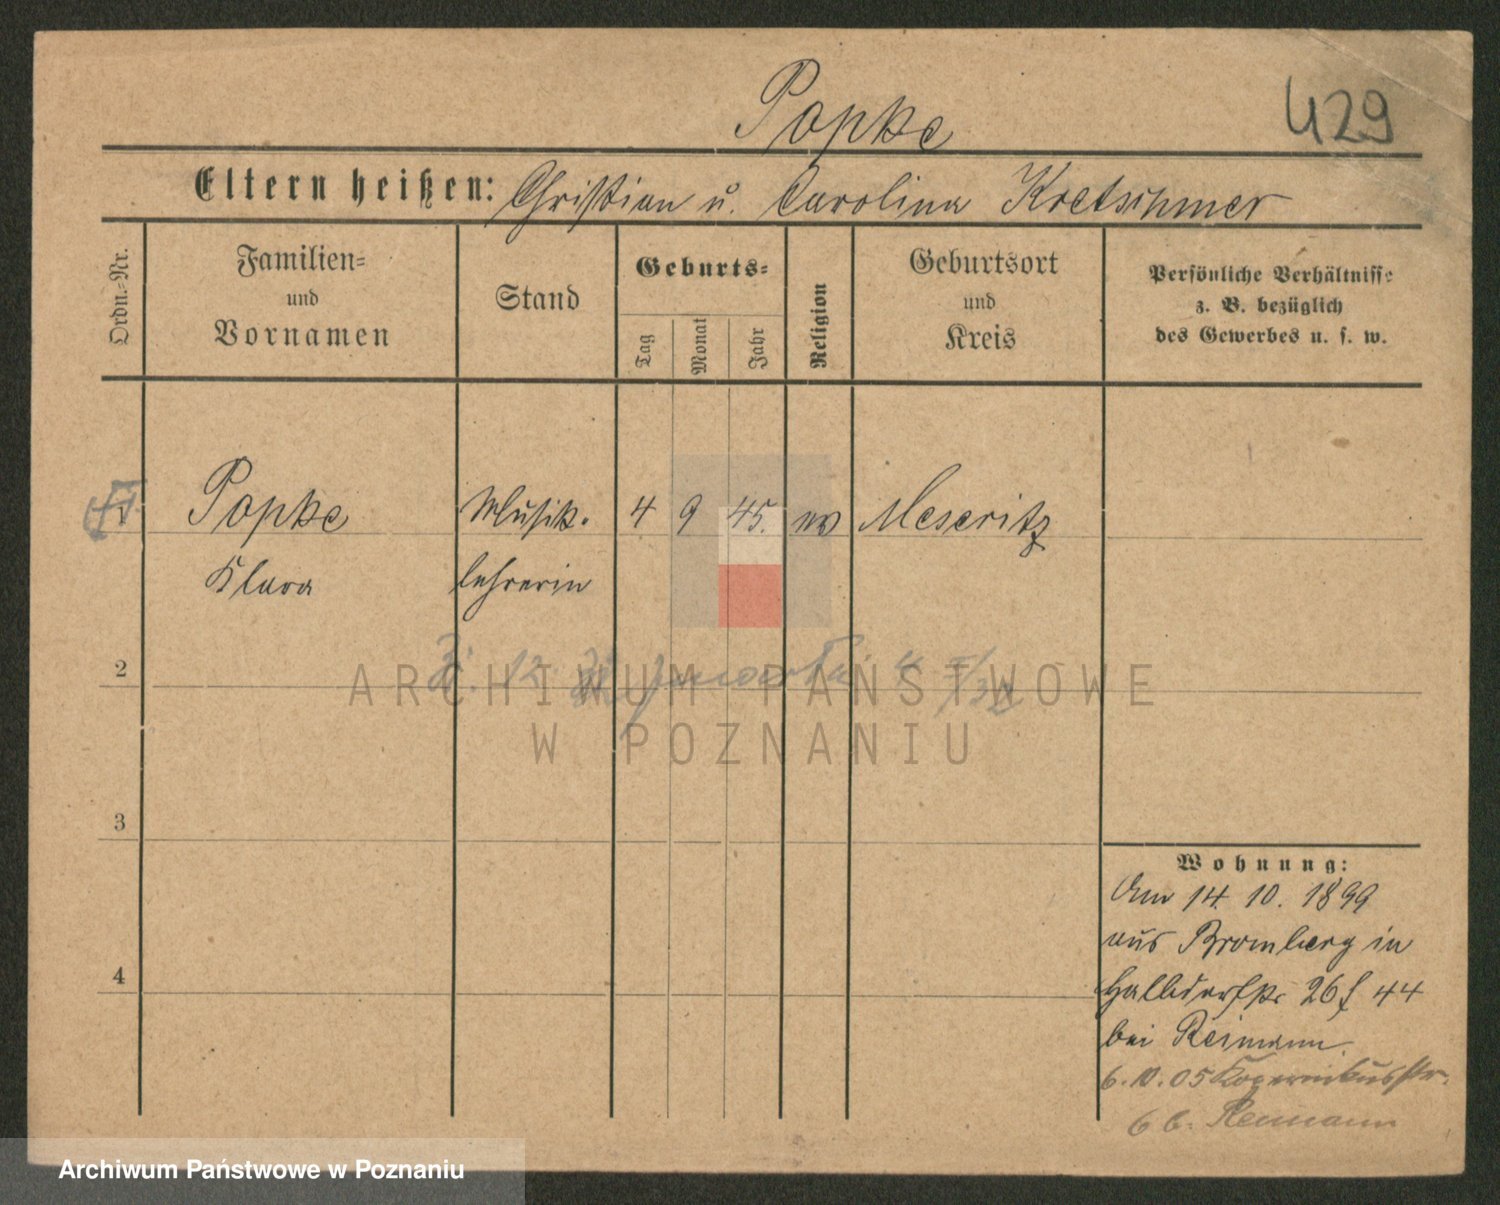 Popke
429
Eltern heißen: Christian u. Carolina Kretschmer
Ordn.-Nr.
Familien-
und
Vornamen
Stand
Geburts-
Tag
Monat
Jahr
Religion
Geburtsort
und
Kreis
Persönliche Verhältnisse
z. B. bezüglich
des Gewerbes u. s. w.
1 Popke Musik- 4 9 45. ev Meseritz
Klara lehrerin
2
zmarła
3
4
ARCHIWUM PAŃSTWOWE
W POZNANIU
Wohnung:
Am 14. 10. 1899
aus Bromberg in
Halbdorfstr 26 44
bei Reimann.
6.10.05 Kopernikusstr.
6 b. Reimann
Archiwum Państwowe w Poznaniu